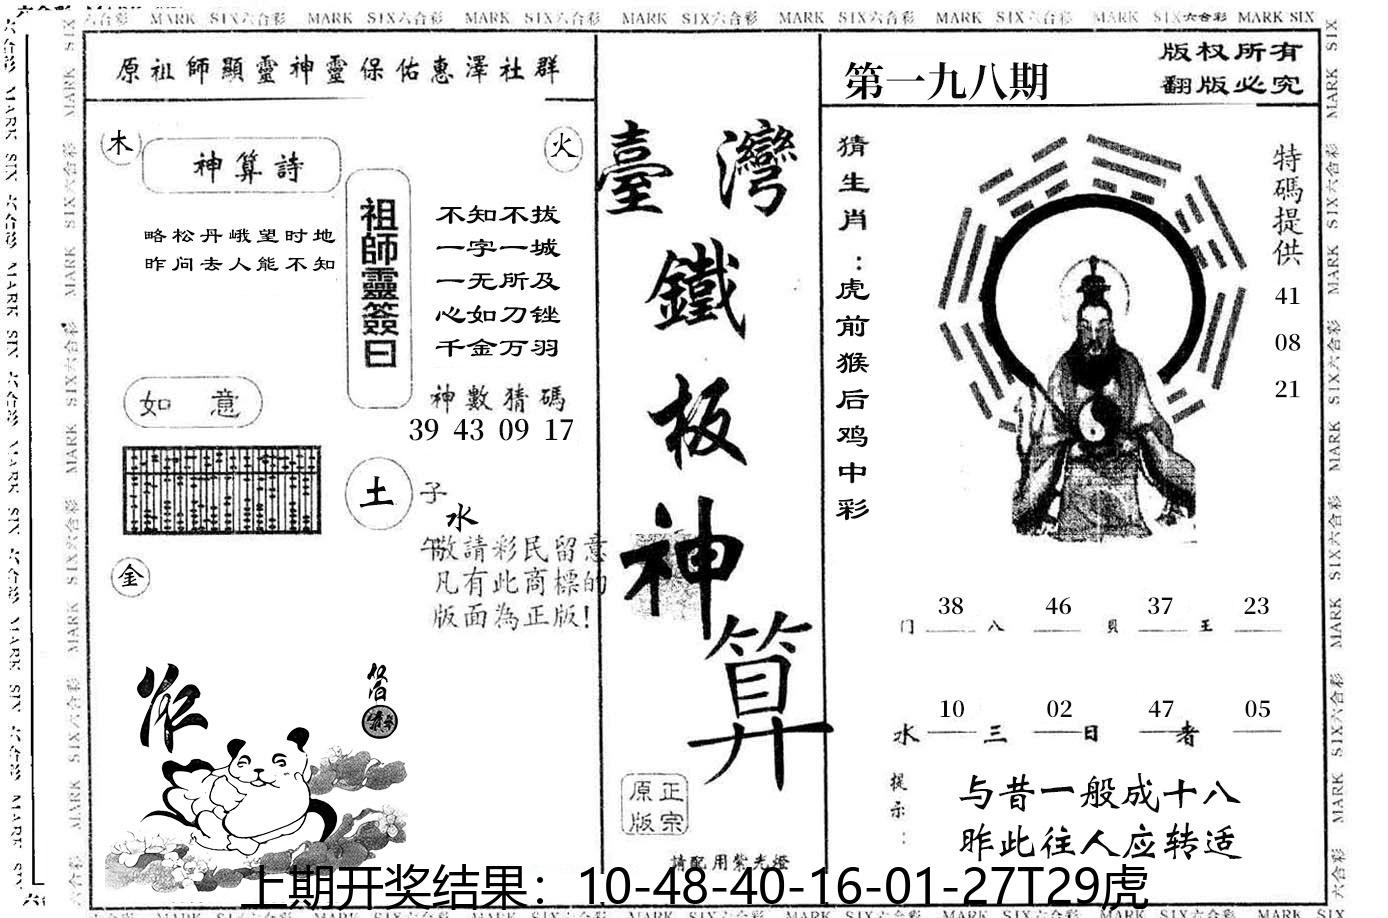 MARK SIX六合彩 MARK SIX六合彩 MARK SIX六合彩 MARK SIX六合彩 MARK SIX六合彩 MARK SIX六合彩 MARK SIX六合彩 MARK SIX
原祖師顯靈神靈保佑惠澤社群
木
火
神算詩
略松丹峨望时地
昨问去人能不知
祖師靈簽曰
不知不拔
一字一城
一无所及
心如刀锉
千金万羽
神數猜碼
39 43 09 17
如意
土
子
水
午
金
敬請彩民留意
凡有此商標的
版面為正版!
臺灣
鐵
板
神
算
正宗
原版
請配用紫光燈
第一九八期
版权所有
翻版必究
猜生肖:虎前猴后鸡中彩
特碼提供
41
08
21
38 46 37 23
门 八 貝 王
10 02 47 05
水 三 日 者
提示:
与昔一般成十八
昨此往人应转适
上期开奖结果：10-48-40-16-01-27T29虎